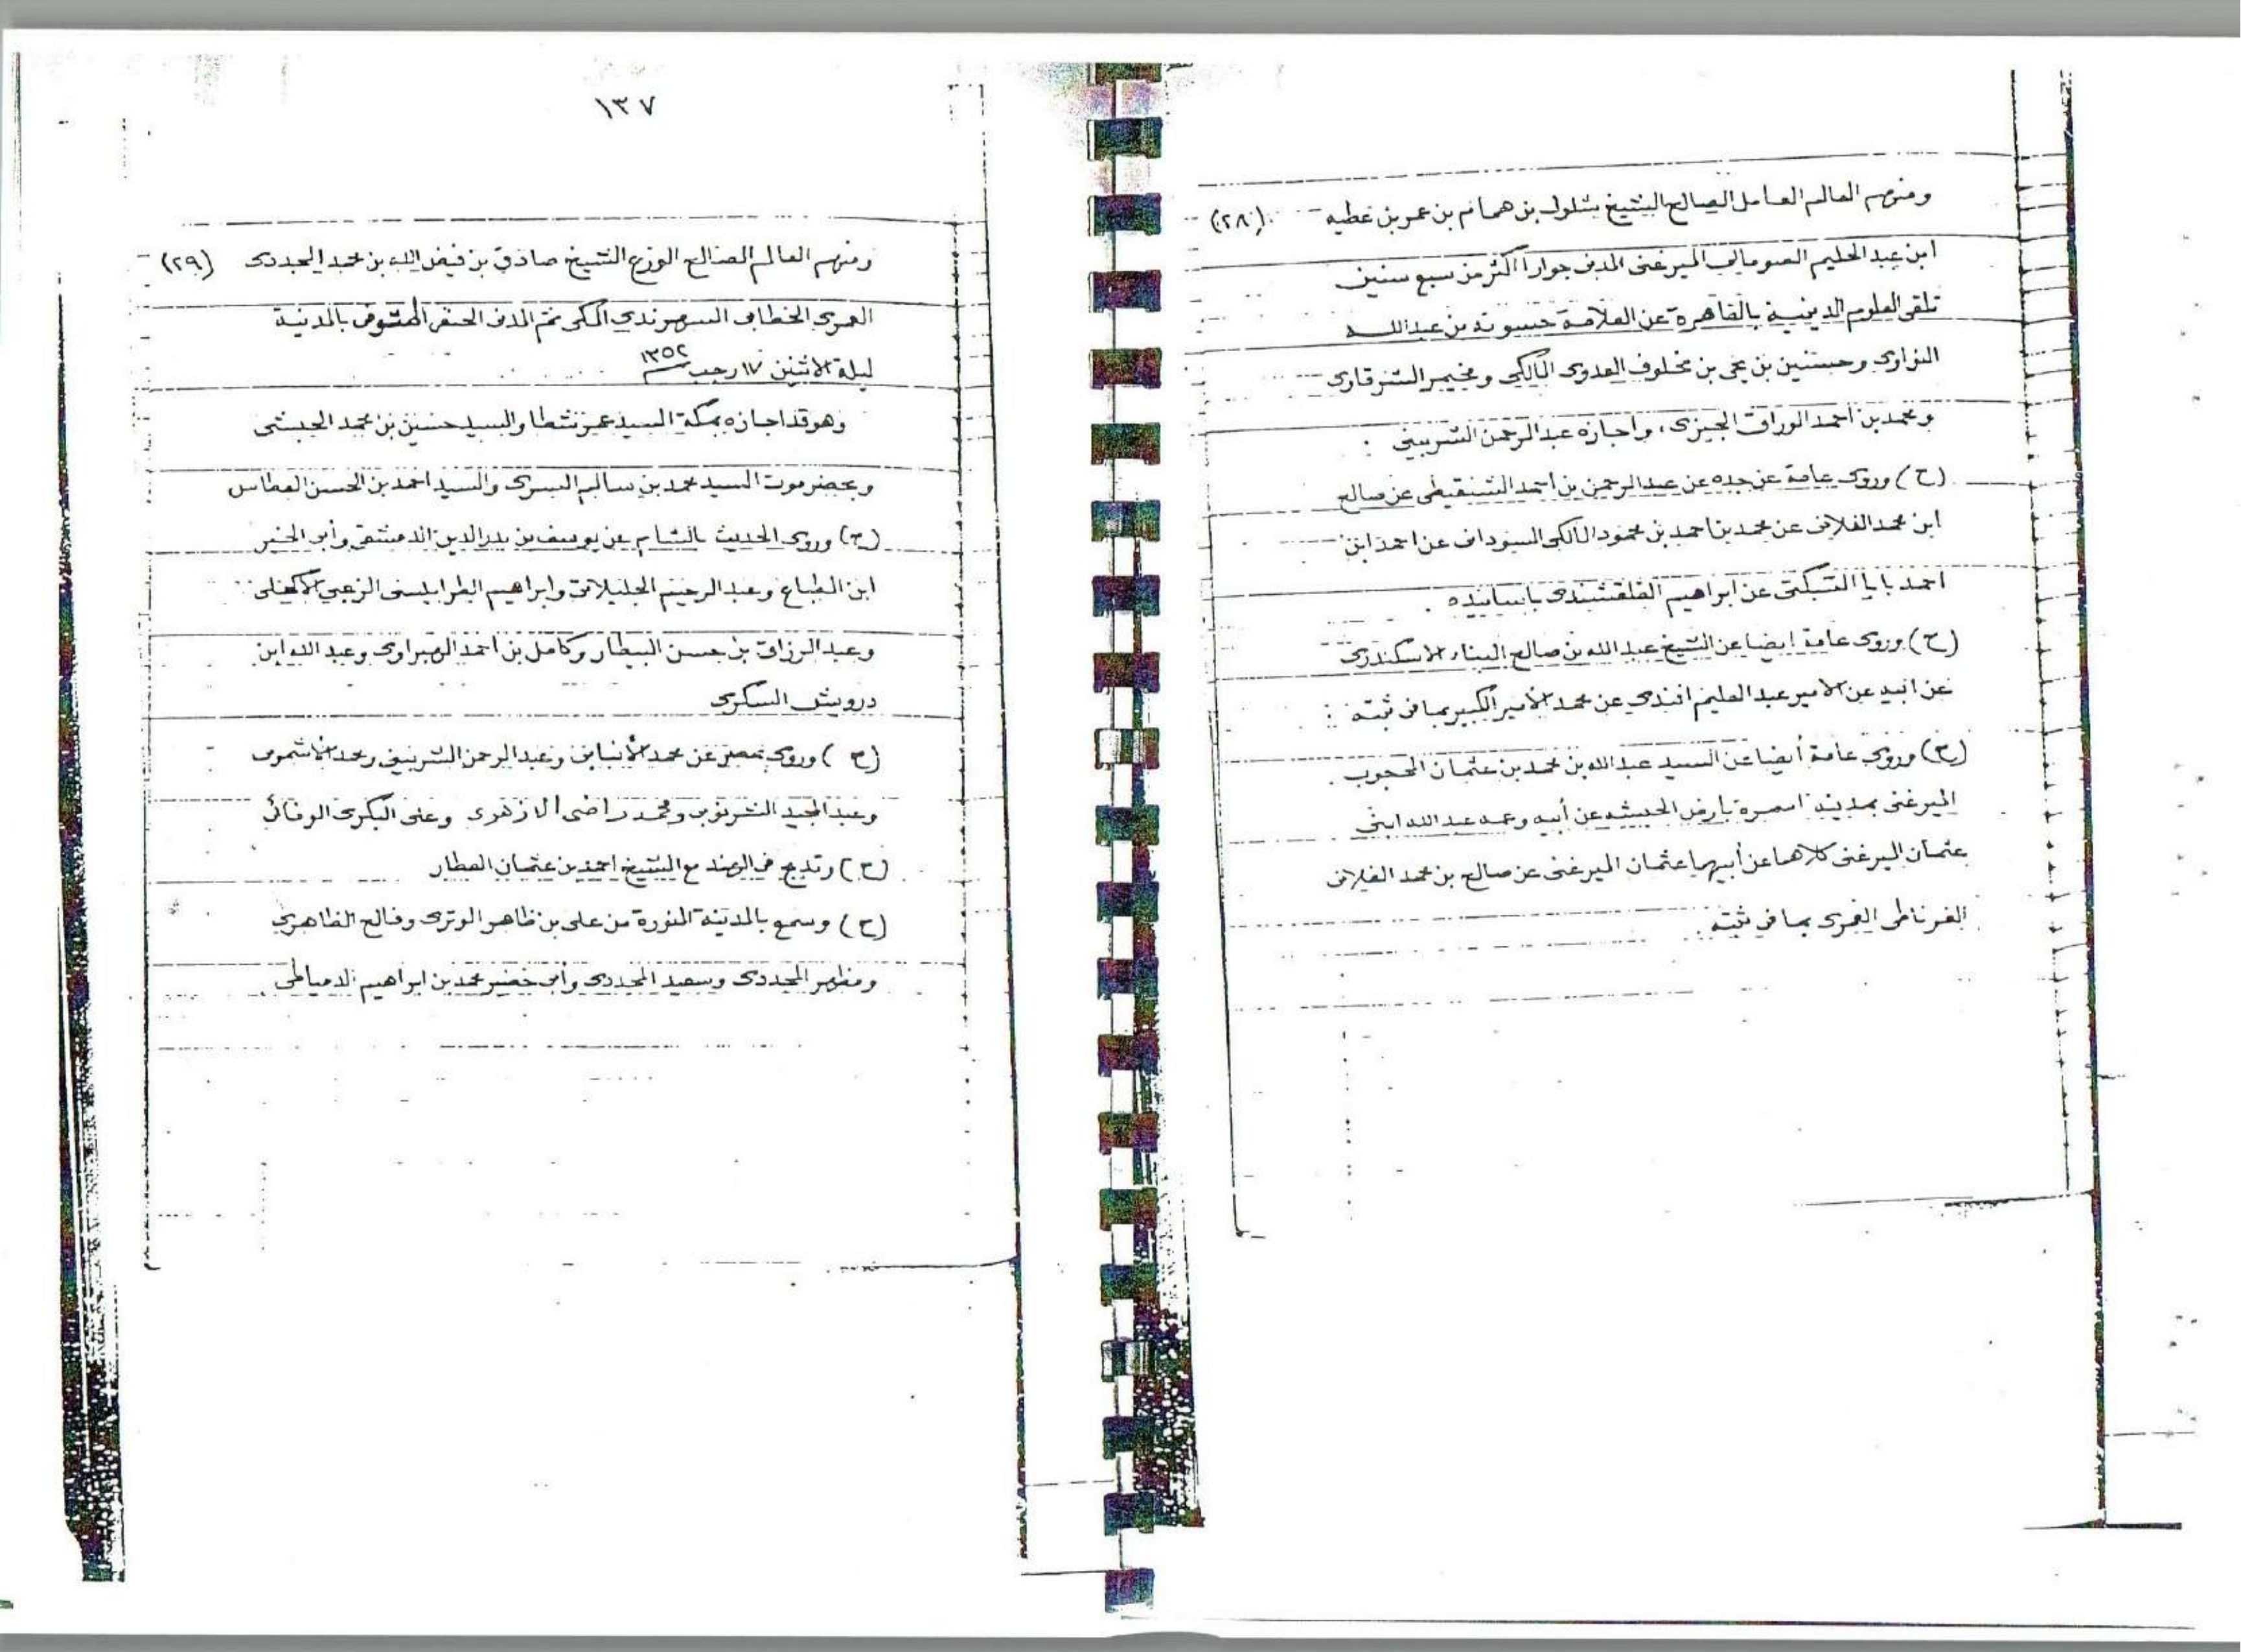 ومنهم العالم العامل الصالح الشيخ شلول بن همام بن عمر بن عطيه (٢٨)
ابن عبد الحليم الصومالي الميرغنى المدنى جوارا أكثر من سبع سنين
تلقى العلوم الدينية بالقاهرة عن العلامة حسونة بن عبدالله
النواوى وحسنين بن يحى بن مخلوف العدوى المالكى ومخيمر الشرقاوى
ومحمد بن أحمد الوراق الجيزى، وأجازه عبدالرحمن الشربينى :
(ح) وروى عامة عن جده عن عبدالرحمن بن أحمد الشنقيطى عن صالح
ابن محمد الفلانى عن محمد بن احمد بن محمود المالكى السودانى عن احمد ابن
احمد بابا التنبكتى عن ابراهيم القلقشندى باسانيده .
(ح) وروى عامة ايضا عن الشيخ عبدالله بن صالح البناء الاسكندرى
عن ابيه عن الامير عبد العليم افندى عن محمد الأمير الكبير بما فى ثبته :
(ح) وروى عامة أيضا عن السيد عبدالله بن محمد بن عثمان المحجوب
الميرغنى بمدينة اسمرة بأرض الحبشه عن أبيه وعمه عبدالله ابنى
عثمان الميرغنى كلاهما عن أبيهما عثمان الميرغنى عن صالح بن محمد الفلانى
العمرى بما فى ثبته .
١٣٧
ومنهم العالم الصالح الورع الشيخ صادق بن فيض الله بن محمد المجددى (٢٩)
العمرى الخطابى السهرندى المكى ثم المدنى الحنفى المتوفى بالمدنية
ليلة الاثنين ١٧ رجب ١٣٥٢
وهو قد اجازه بمكة السيد عمر شطا والسيد حسين بن محمد الحبشى
وبحضرموت السيد محمد بن سالم السرى والسيد احمد بن الحسن العطاس
(ح) وروى الحديث بالشام عن يوسف بن بدرالدين الدمشقى وأبى الخير
ابن الطباع وعبد الرحيم وابراهيم الطرابلسى الزعبي
وعبد الرزاق بن حسن البيطار وكامل بن احمد الهبراوى وعبد الله ابن
درويش السكرى
(ح) وروى بمصر عن محمد الأنبابى وعبدالرحمن الشربينى ومحمد الأشمونى
وعبد المجيد الشرنوبى ومحمد راضى الازهرى وعلى البكرى الوفائى
(ح) وتدبج فى الهند مع الشيخ احمد بن عثمان العطار
(ح) وسمع بالمدينة المنورة من على بن ظاهر الوترى وفالح الظاهرى
ومظهر المجددى وسعيد المجددى وأبى خضير محمد بن ابراهيم الدمياطى